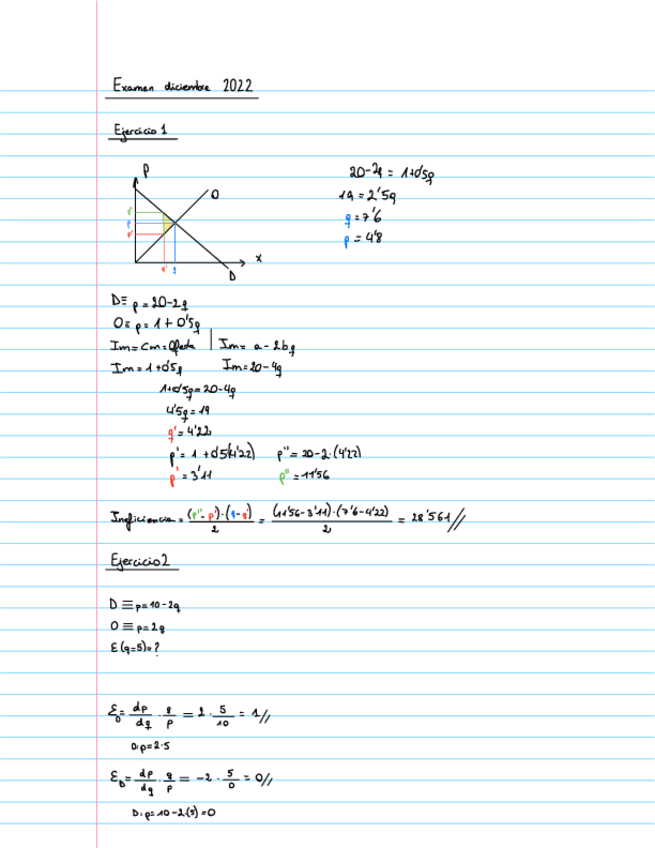 Examen diciembre 2022
Ejercicio 1
P
O
p''
p
p'
q'
q
x
D
20-2q = 1+0'5q
19 = 2'5q
q = 7'6
p = 4'8
D≡ p = 20-2q
O≡ p = 1 + 0'5q
Im = Cm = Oferta | Im = a - 2bq
Im = 1+0'5q Im = 20-4q
1+0'5q = 20-4q
4'5q = 19
q' = 4'22
p' = 1 + 0'5(4'22) p'' = 20-2·(4'22)
p' = 3'11 p'' = 11'56
Ineficiencia = (p''-p')·(q-q')/2 = (11'56-3'11)·(7'6-4'22)/2 = 28'561//
Ejercicio 2
D ≡ p = 10-2q
O ≡ p = 2q
E (q=5) = ?
Eo = dp/dq · q/p = 2 · 5/10 = 1//
O: p = 2·5
ED = dp/dq · q/p = -2 · 5/0 = 0//
D: p = 10-2(5) = 0